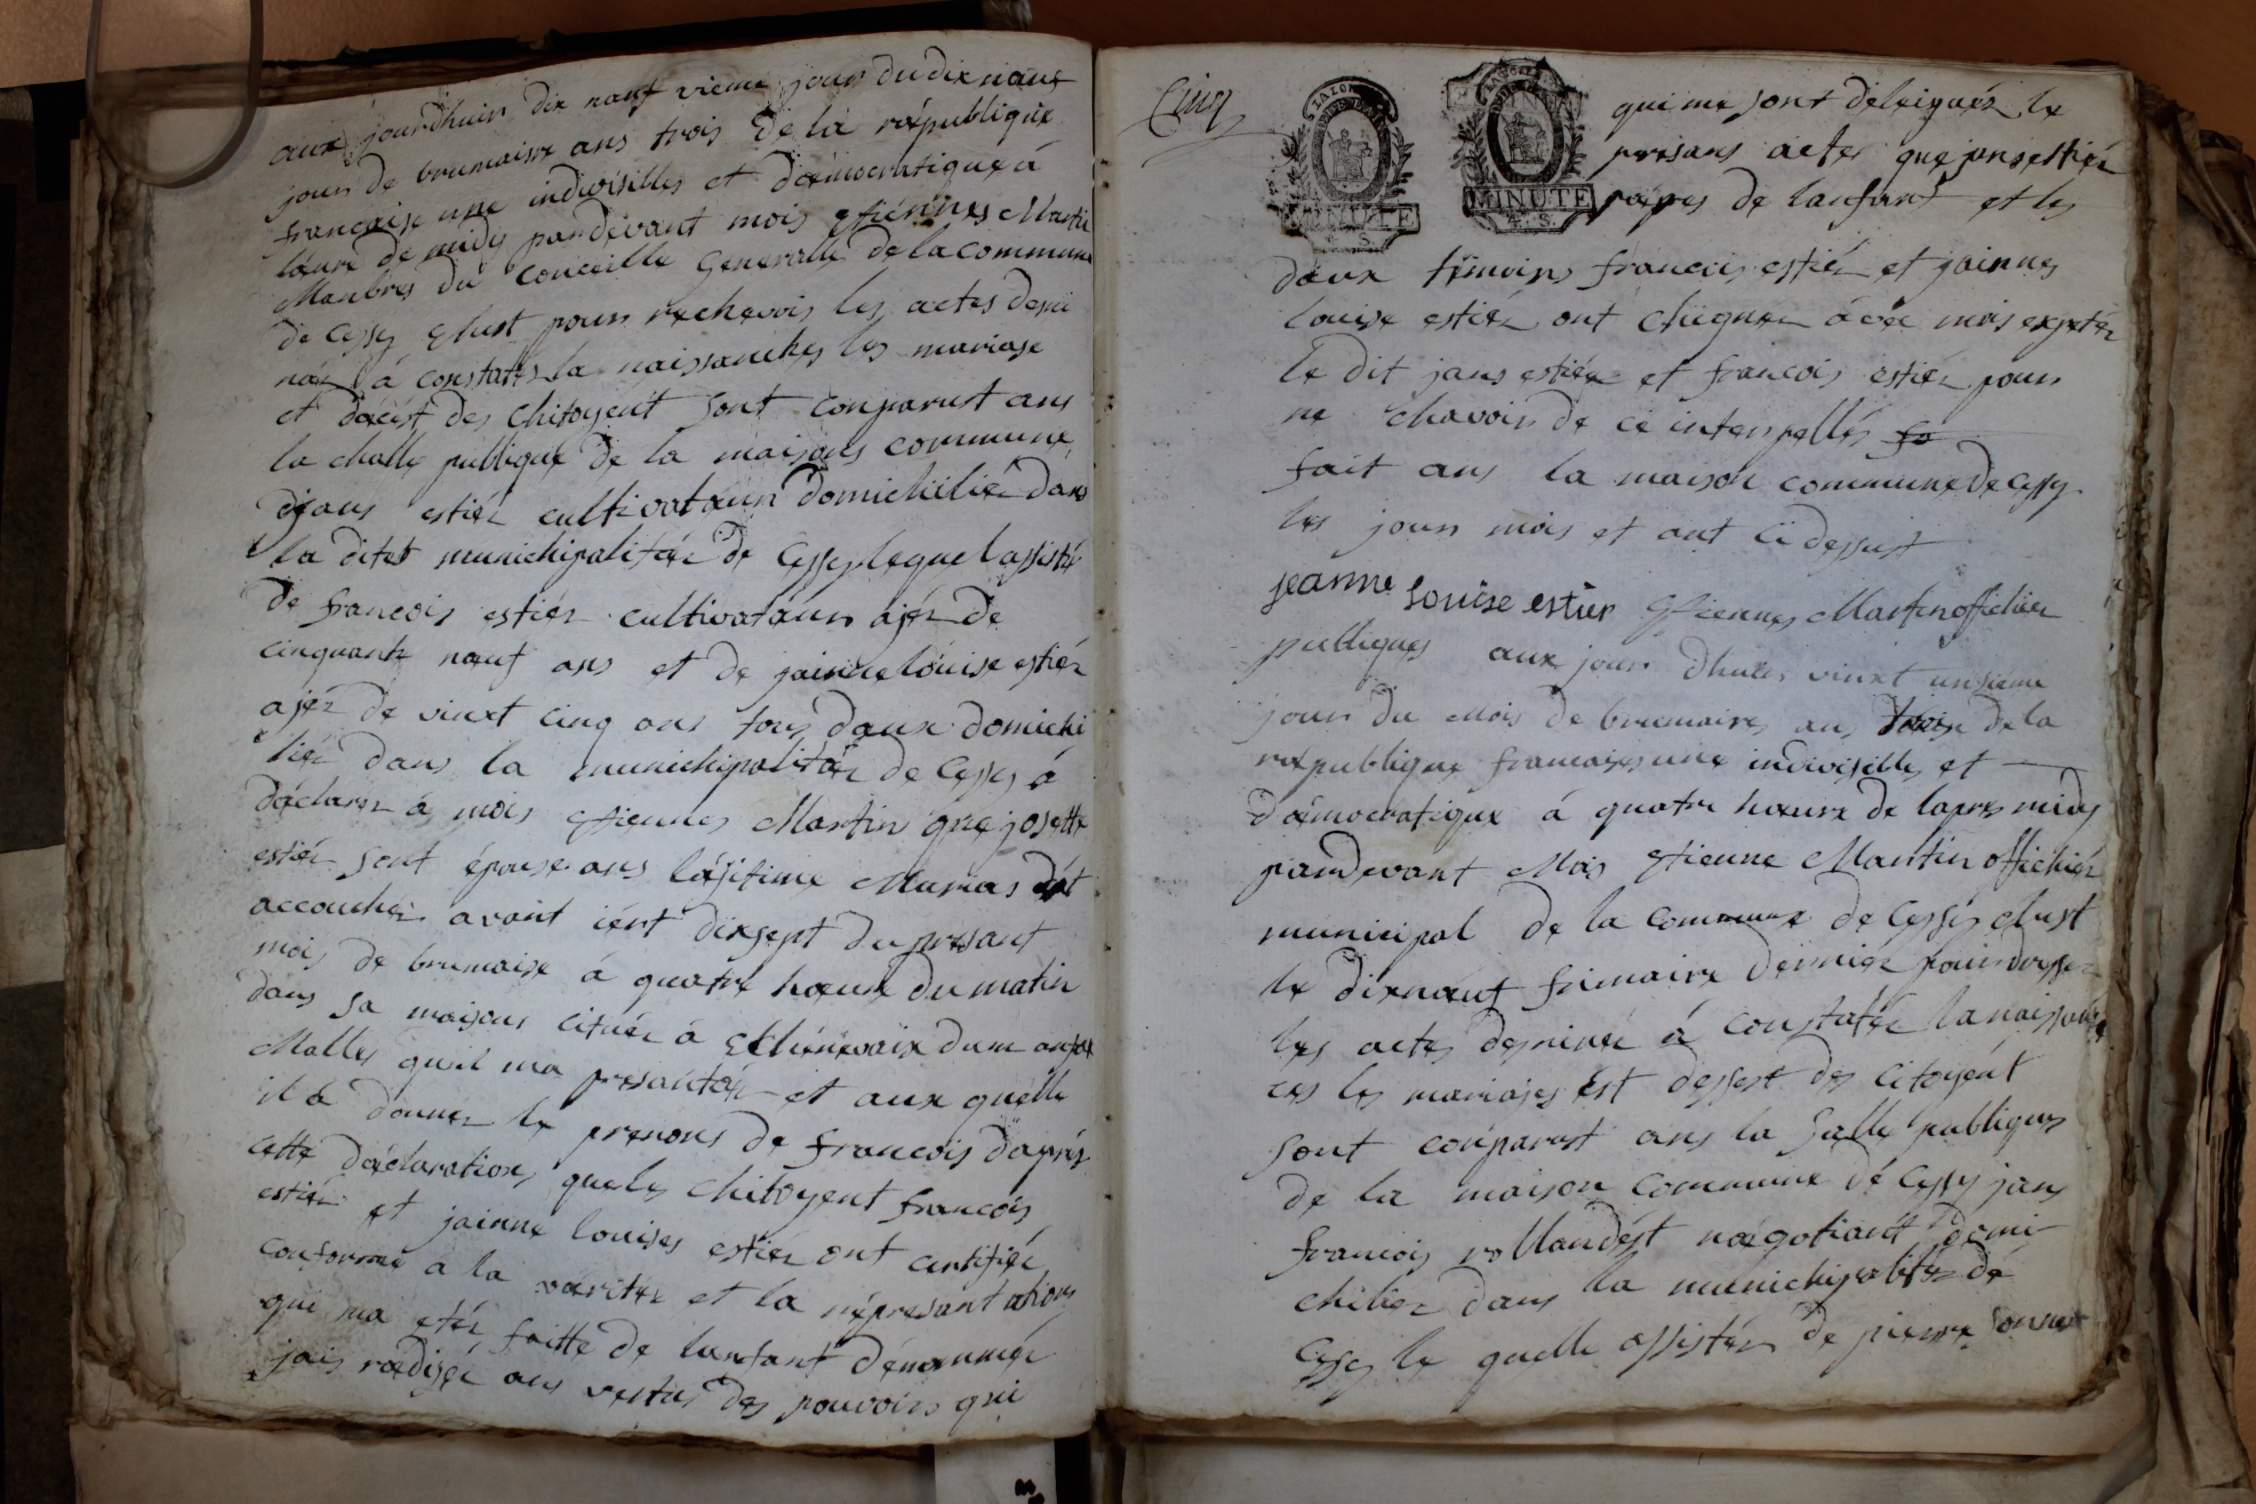 aux jourdhuis dix nauf vieme jour du dix nauf
jour de brumaire ans trois de la raépublique
francaise une indivisilles et daémocratique á
lœure de midy pardevant mois estiénnes Martin
Manbres du conceille generalle de la commune
de Cessy elust pour rechevois les actes desni
náe á constates la naissanches les mariase
et dáest des chitoyent sont conparust ans
la challe publique de la maisons commune
djans estiér cultivataur domichilié dans
la dites munichipalitáe de Cessy lequel assisté
de francois estiér cultivataur ajér de
cinquante nauf ans et de jainne lóuise estiér
ajér de vinxt cinq ans tous daux domichi
lier dans la munichipalitáe de Cessy á
daéclarer á mois estiennes Martin que josette
estiér sont épouse ans láesitime Marias dét
accoucher avant iért dixsept du presant
mois de brumaire á quatre hœure du matin
dans sa maisons cituér á Chénevaix dunt anfat
Malles quil ma presantáer et aux quelle
il a donner le prenons de francois daprés
cette daéclarations que les chitoyent francois
estiér et jainne louises estiér ont certifiér
conforme a la vaeritée et la répresantations
qui ma etér faitte de lanfant dénommér
jais raédisér ans vertus des pouvoirs qui
Cinq
LA LOI
MINUTE
4. S.
MINUTE
4. S.
qui me sont déleiguér le
presans actes que jans estiér
paipes de lanfant et les
daux témoins francois estiér et jainnes
louise estiér ont chignér avéc mois exsetér
le dit jans estiér et francois estiér pour
ne chavoir de ce interpellés fa
fait ans la maison commune de Cessy
les jour mois et ant ci dessust
jeanne Louise estier estiennes Martin offichier
publiques aux jour dhuis vinxt unsieme
jour du Mois de brumaires ans trois de la
raépublique francaises une indivisilles et
daémocratique á quatre hœure de lapres midy
pardevant Mois estienne Martin offichiér
municipal de la commune de Cessy elust
le dixnauf frimaire dernier pour dresser
les actes desninér á constatér la naissan
ces les mariajes ést dessest des citoyent
sont conparust ans la Salle publiques
de la maison commune dé Cessy jans
francois rollandést naégotiant domi-
chilier dans la munichipalitér dé
Cessy le quelle assistér de pierre